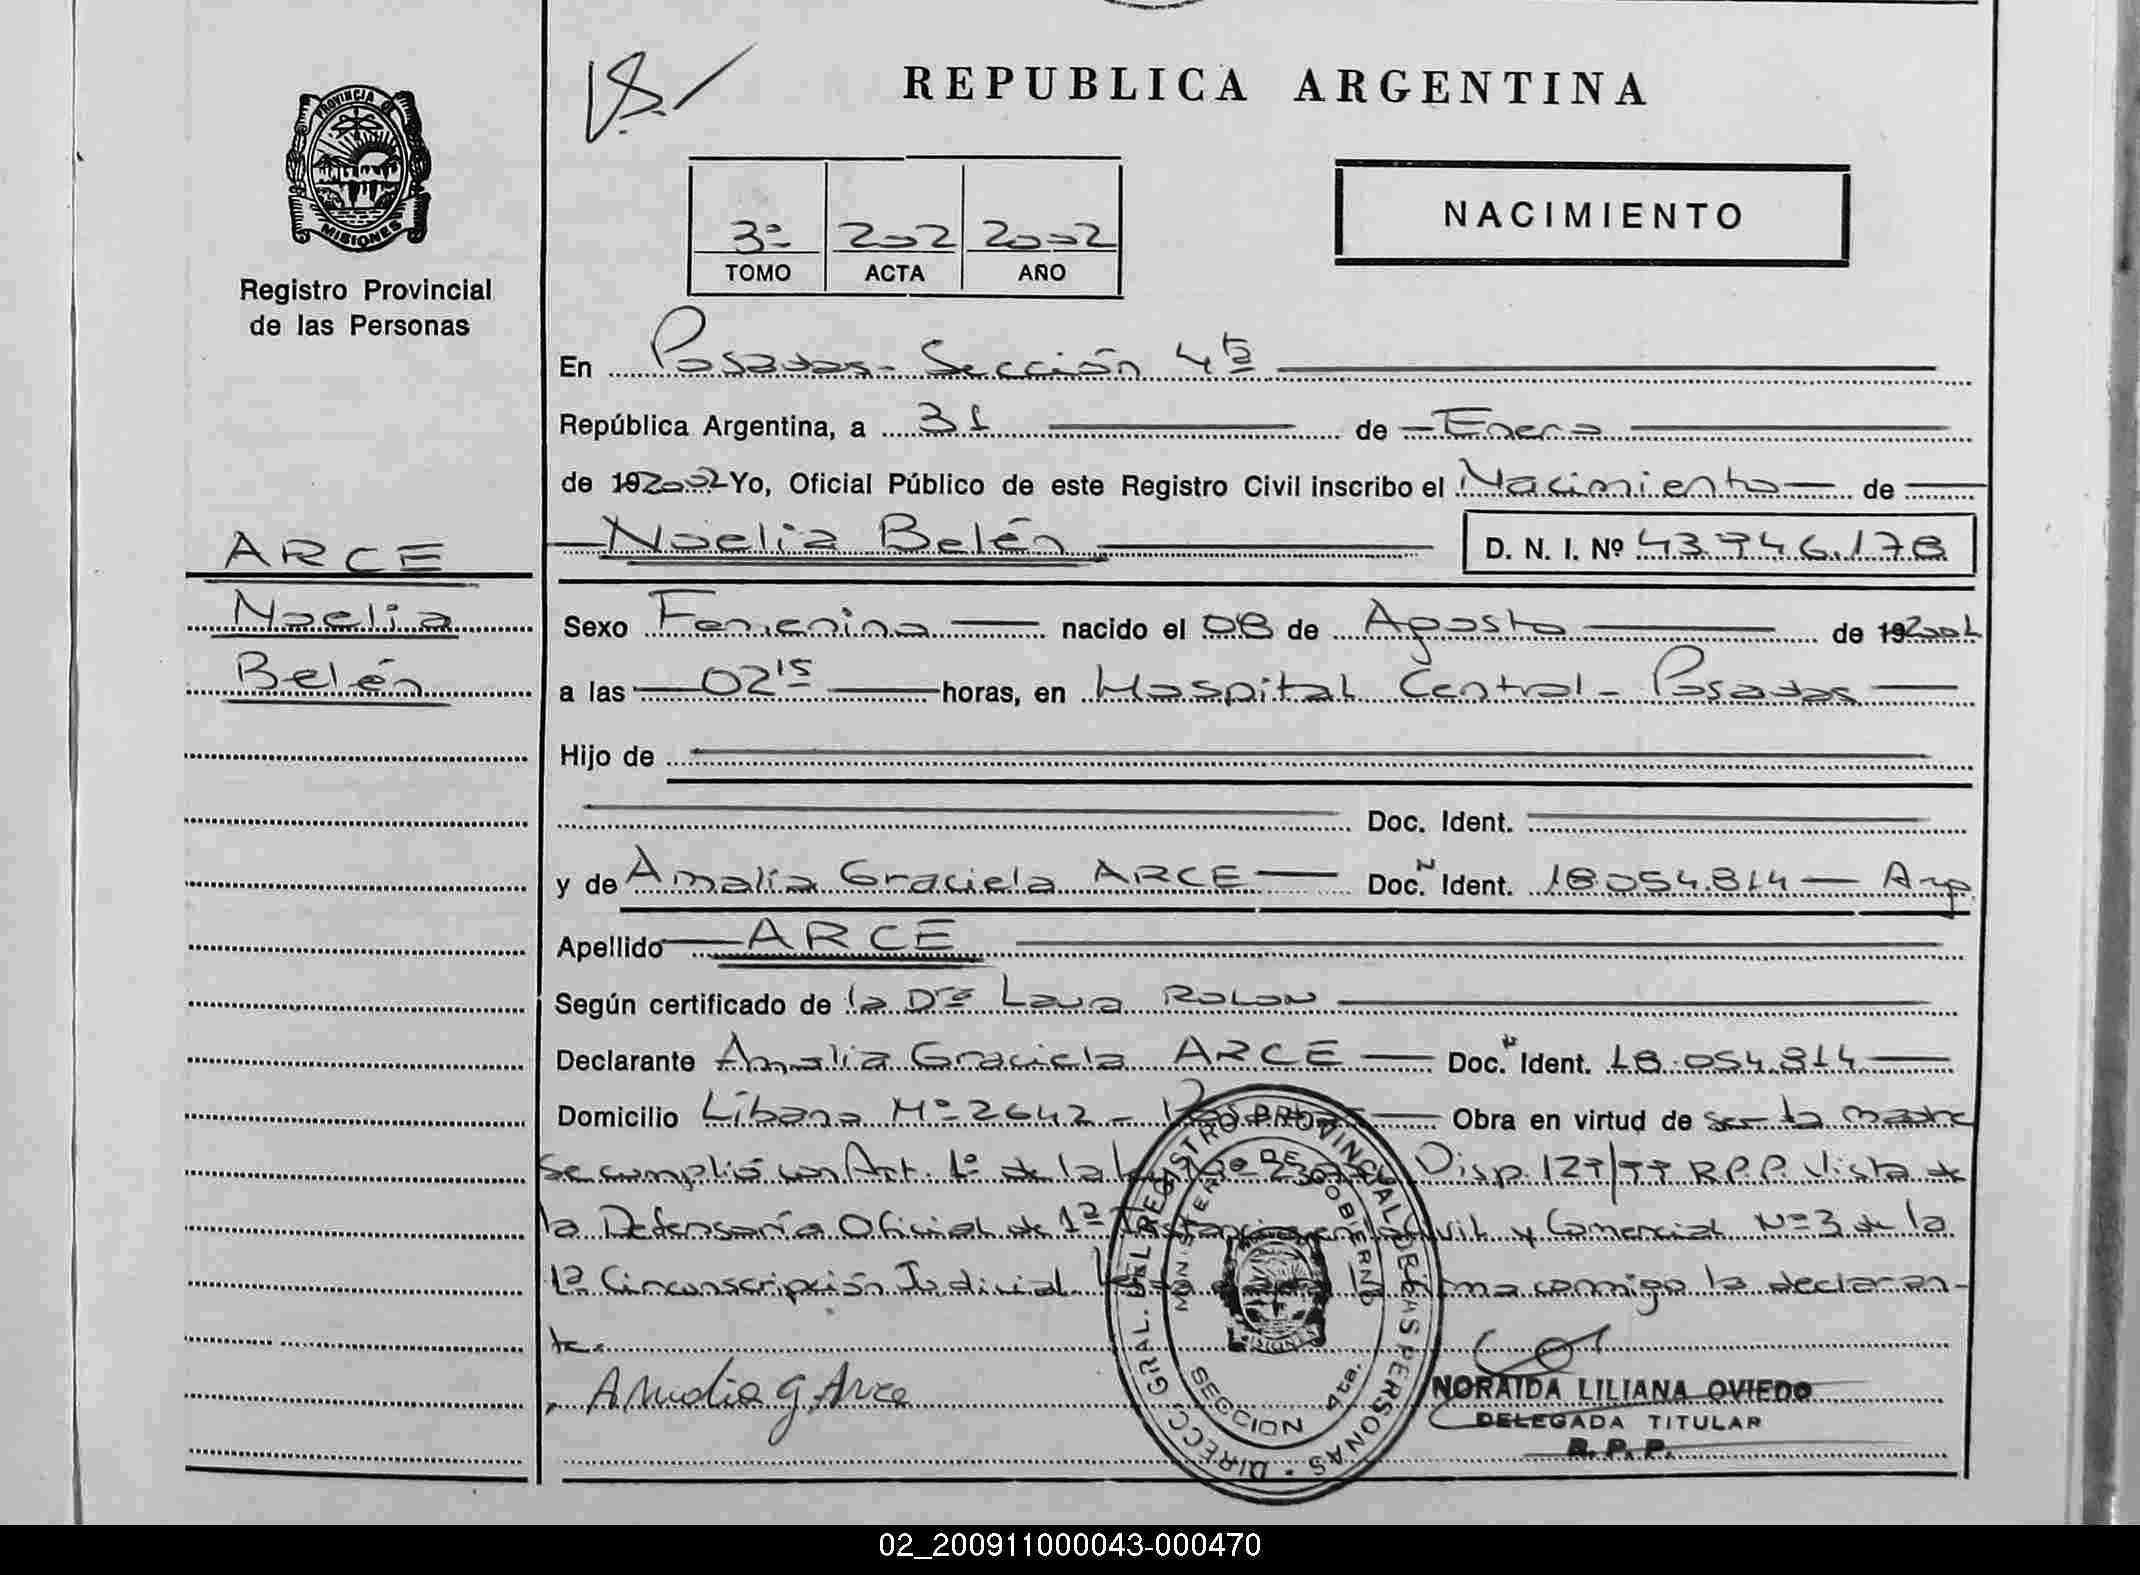 REPUBLICA ARGENTINA
PROVINCIA DE
MISIONES
Registro Provincial
de las Personas
NACIMIENTO
3º 202 2002
TOMO ACTA AÑO
En Posadas - Sección 4ta
República Argentina, a 31 de Enero
de 192002 Yo, Oficial Público de este Registro Civil inscribo el Nacimiento de
Noelia Belén D. N. I. Nº 43.946.178
ARCE
Noelia
Belén
Sexo Femenino nacido el 08 de Agosto de 192001
a las 02 15 horas, en Hospital Central - Posadas
Hijo de
Doc. Ident.
y de Amalia Graciela ARCE Doc. N Ident. 18.054.814 - Arg
Apellido ARCE
Según certificado de la Dra Laura ROLON
Declarante Amalia Graciela ARCE Doc. N Ident. 18.054.814
Domicilio Líbano Nº 2642 - Obra en virtud de ser la madre
se cumplió con Art. 1º de la Disp. R.P.P. Vista de
la Defensoría Oficial de 1ª Instancia en lo Civil y Comercial Nº 3 de la
1ª Circunscripción Judicial. firma conmigo la declaran-
te.
Amalia G Arce
DIRECC. GRAL. DEL REGISTRO PROVINCIAL DE LAS PERSONAS
MINISTERIO DE GOBIERNO
MISIONES
SECCION 4ta.
NORAIDA LILIANA OVIEDO
DELEGADA TITULAR
R. P. P.
02_200911000043-000470